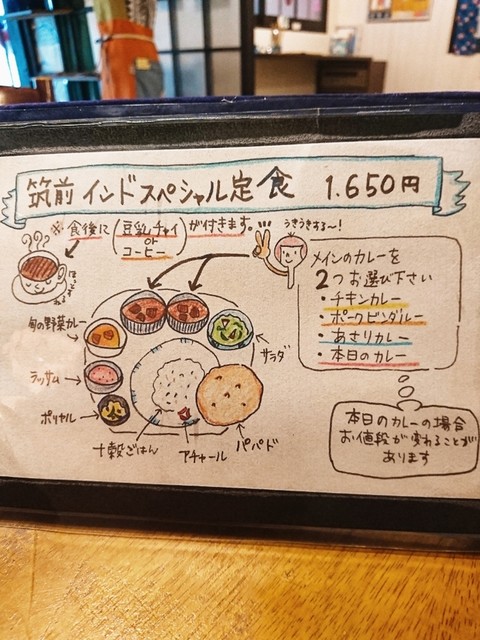 筑前 インドスペシャル定食 1.650円
※食後に(豆乳チャイ or コーヒー)が付きます。
うきうきする〜!
メインのカレーを
2つお選び下さい
・チキンカレー
・ポークビンダルー
・あさりカレー
・本日のカレー
旬の野菜カレー
ラッサム
ポリヤル
サラダ
十穀ごはん
アチャール
パパド
本日のカレーの場合
お値段が変わることが
あります